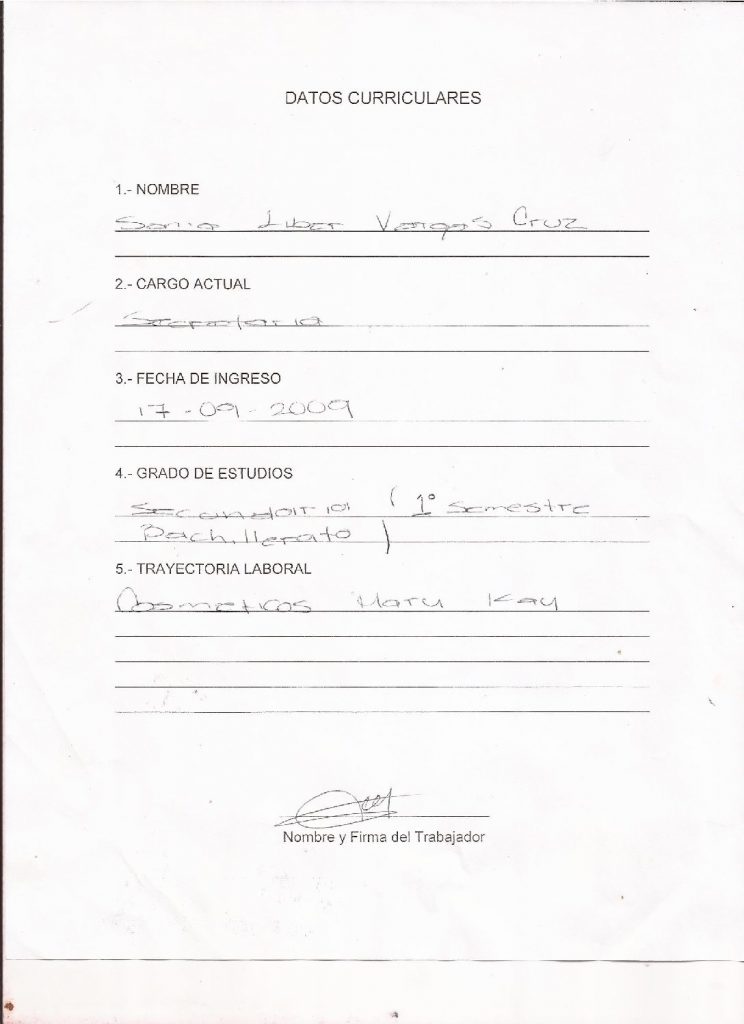 DATOS CURRICULARES
1.- NOMBRE
Sonia Liber Vargas Cruz
2.- CARGO ACTUAL
Secretaria
3.- FECHA DE INGRESO
17-09-2009
4.- GRADO DE ESTUDIOS
Secundaria (1° Semestre
Bachillerato)
5.- TRAYECTORIA LABORAL
Cosmeticos Mary Kay
Nombre y Firma del Trabajador